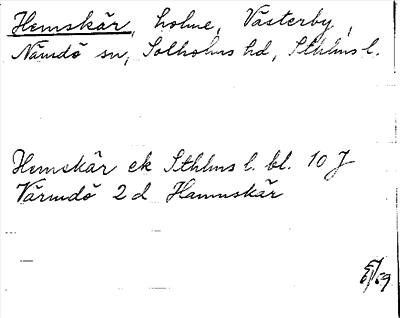 Hemskär, holme, Västerby,
Nämdö sn, Solholms hd, Sthlms l.
Hemskär ek Sthlms l. bl. 10 J
Värmdö 2 d Hamnskär